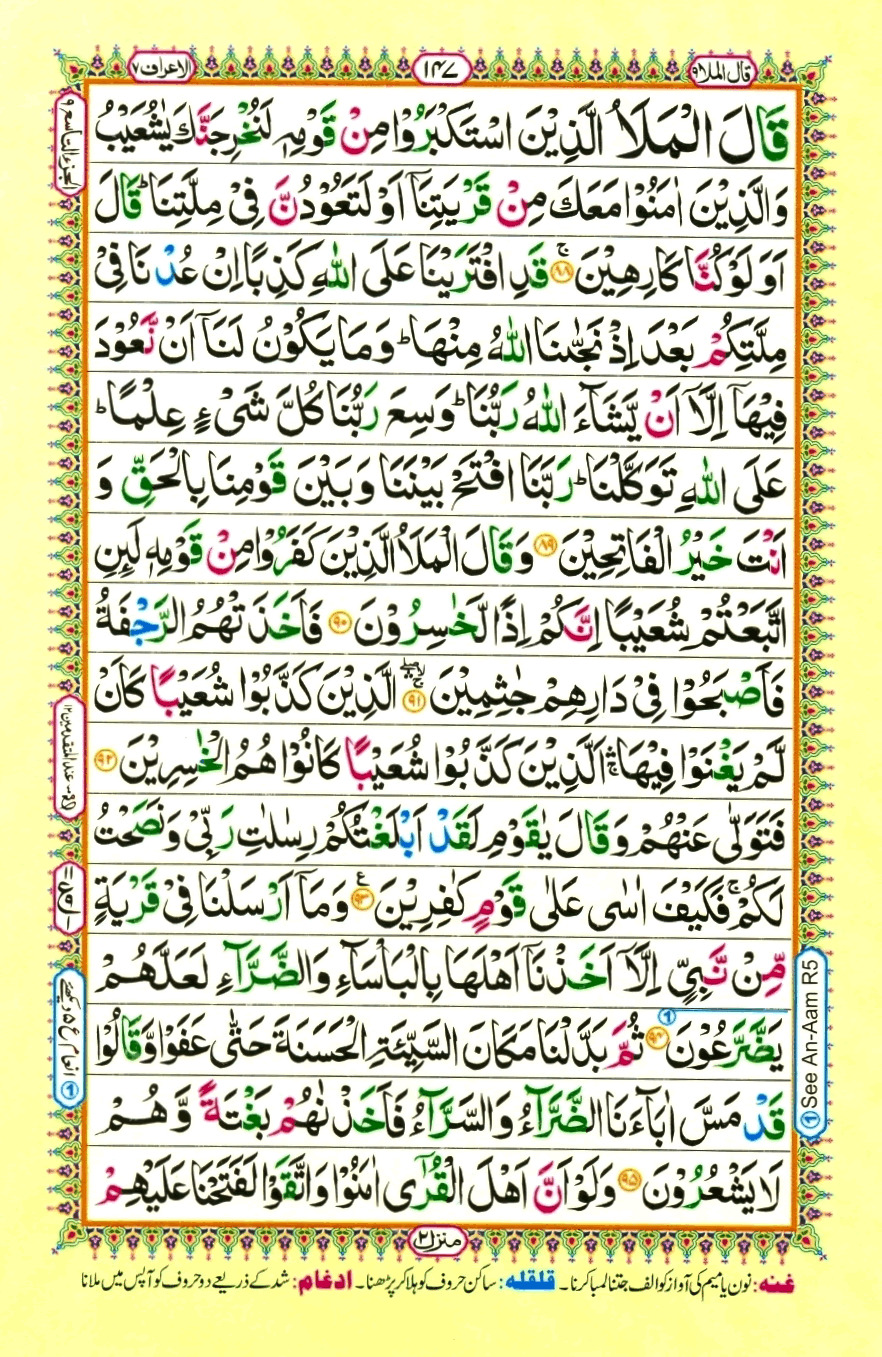 الاعراف ٧
١٤٧
قال الملا ٩
قَالَ الْمَلَاُ الَّذِيْنَ اسْتَكْبَرُوْا مِنْ قَوْمِهٖ لَنُخْرِجَنَّكَ يٰشُعَيْبُ
وَالَّذِيْنَ اٰمَنُوْا مَعَكَ مِنْ قَرْيَتِنَاۤ اَوْ لَتَعُوْدُنَّ فِيْ مِلَّتِنَا ؕ قَالَ
اَوَلَوْ كُنَّا كَارِهِيْنَ ۚ ﴿٨٨﴾ قَدِ افْتَرَيْنَا عَلَى اللّٰهِ كَذِبًا اِنْ عُدْنَا فِيْ
مِلَّتِكُمْ بَعْدَ اِذْ نَجّٰىنَا اللّٰهُ مِنْهَا ؕ وَمَا يَكُوْنُ لَنَاۤ اَنْ نَّعُوْدَ
فِيْهَاۤ اِلَّاۤ اَنْ يَّشَآءَ اللّٰهُ رَبُّنَا ؕ وَسِعَ رَبُّنَا كُلَّ شَيْءٍ عِلْمًا ؕ
عَلَى اللّٰهِ تَوَكَّلْنَا ؕ رَبَّنَا افْتَحْ بَيْنَنَا وَبَيْنَ قَوْمِنَا بِالْحَقِّ وَ
اَنْتَ خَيْرُ الْفَاتِحِيْنَ ﴿٨٩﴾ وَقَالَ الْمَلَاُ الَّذِيْنَ كَفَرُوْا مِنْ قَوْمِهٖ لَىِٕنِ
اتَّبَعْتُمْ شُعَيْبًا اِنَّكُمْ اِذًا لَّخٰسِرُوْنَ ﴿٩٠﴾ فَاَخَذَتْهُمُ الرَّجْفَةُ
فَاَصْبَحُوْا فِيْ دَارِهِمْ جٰثِمِيْنَ ﴿٩١﴾ الَّذِيْنَ كَذَّبُوْا شُعَيْبًا كَاَنْ
لَّمْ يَغْنَوْا فِيْهَا ۛۚ اَلَّذِيْنَ كَذَّبُوْا شُعَيْبًا كَانُوْا هُمُ الْخٰسِرِيْنَ ﴿٩٢﴾
فَتَوَلّٰى عَنْهُمْ وَقَالَ يٰقَوْمِ لَقَدْ اَبْلَغْتُكُمْ رِسٰلٰتِ رَبِّيْ وَنَصَحْتُ
لَكُمْ ۚ فَكَيْفَ اٰسٰى عَلٰى قَوْمٍ كٰفِرِيْنَ ﴿٩٣﴾ وَمَاۤ اَرْسَلْنَا فِيْ قَرْيَةٍ
مِّنْ نَّبِيٍّ اِلَّاۤ اَخَذْنَاۤ اَهْلَهَا بِالْبَاْسَآءِ وَالضَّرَّآءِ لَعَلَّهُمْ
يَضَّرَّعُوْنَ ﴿٩٤﴾ ① ثُمَّ بَدَّلْنَا مَكَانَ السَّيِّئَةِ الْحَسَنَةَ حَتّٰى عَفَوْا وَّقَالُوْا
قَدْ مَسَّ اٰبَآءَنَا الضَّرَّآءُ وَالسَّرَّآءُ فَاَخَذْنٰهُمْ بَغْتَةً وَّهُمْ
لَا يَشْعُرُوْنَ ﴿٩٥﴾ وَلَوْ اَنَّ اَهْلَ الْقُرٰۤى اٰمَنُوْا وَاتَّقَوْا لَفَتَحْنَا عَلَيْهِمْ
الجزء التاسع ٩
① انعام ع ۵ دیکھئے
① See An-Aam R5
منزل ٢
غنه: نون یا میم کی آواز کو الف جتنا لمبا کرنا۔ قلقله: ساکن حروف کو ہلا کر پڑھنا۔ ادغام: شد کے ذریعے دو حروف کو آپس میں ملانا